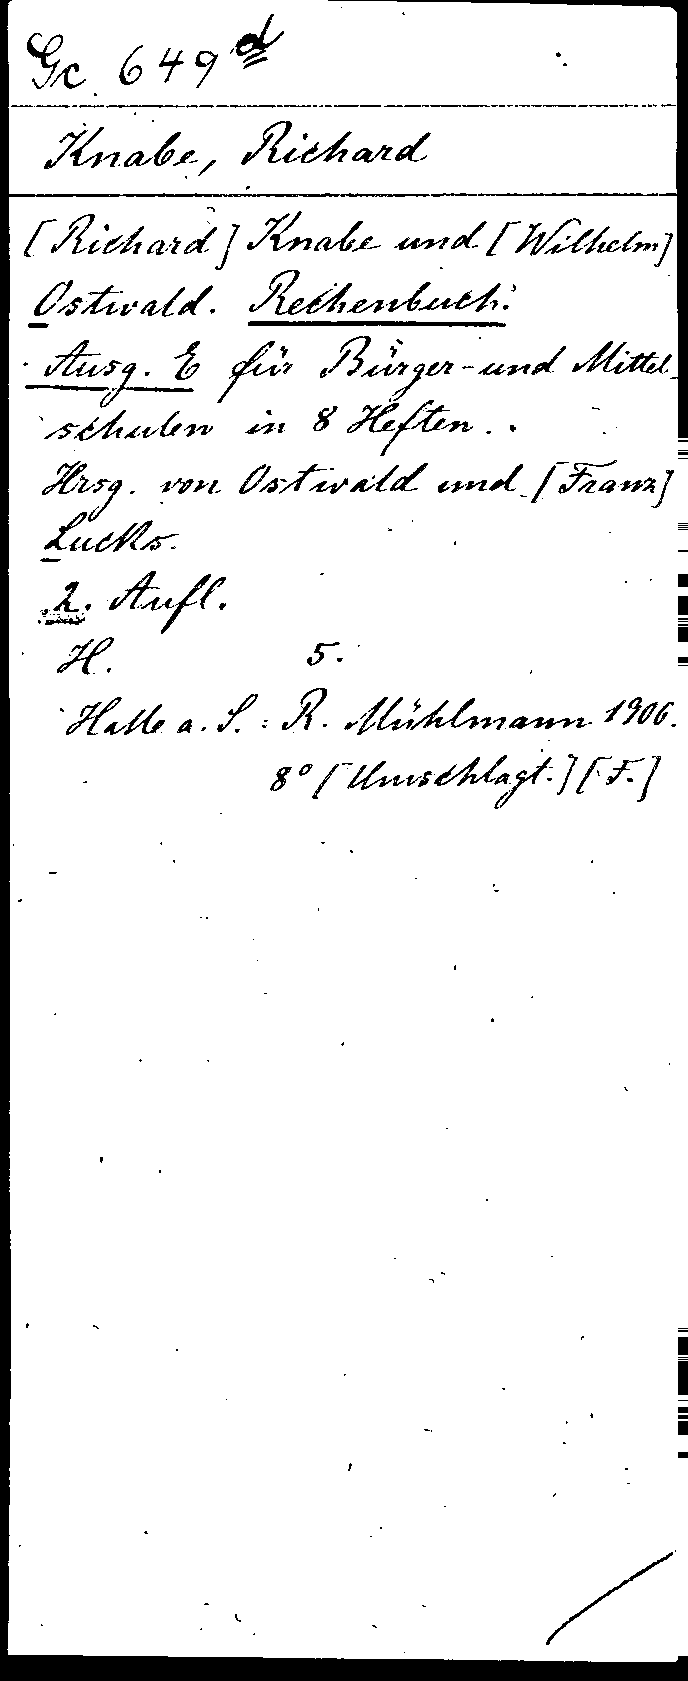 Gc 649 d
Knabe, Richard
[Richard] Knabe und [Wilhelm]
Ostwald. Rechenbuch.
Ausg. E für Bürger- und Mittel-
schulen in 8 Heften..
Hrsg. von Ostwald und [Franz]
Lucks.
2. Aufl.
H. 5.
Halle a. S.: R. Mühlmann 1906.
8° [Umschlagt.] [F.]